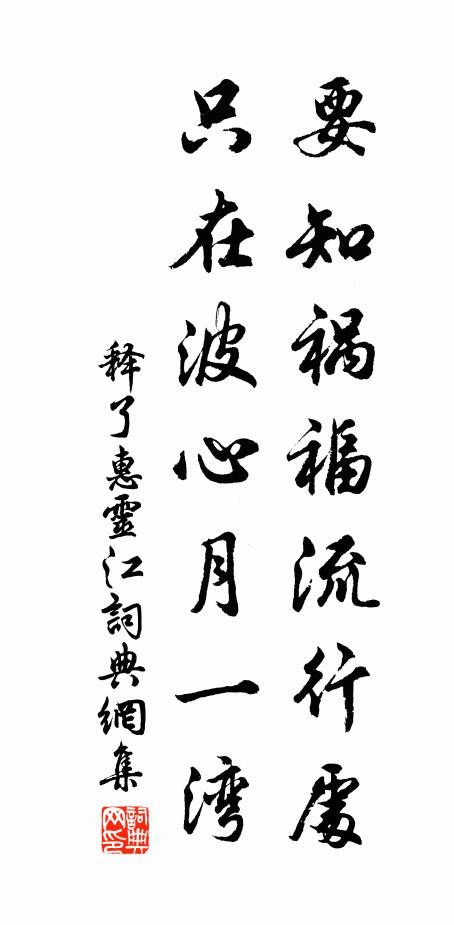 要知祸福流行處
只在波心月一湾
释了惠靈江詞典網集
詞典网印